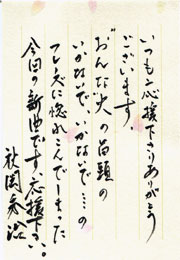 いつも応援下さりありがとう
ございます
"おんな火"の冒頭の
いかないで、いかないで…の
フレーズに惚れこんでしまった
今回の新曲です、応援下さい。